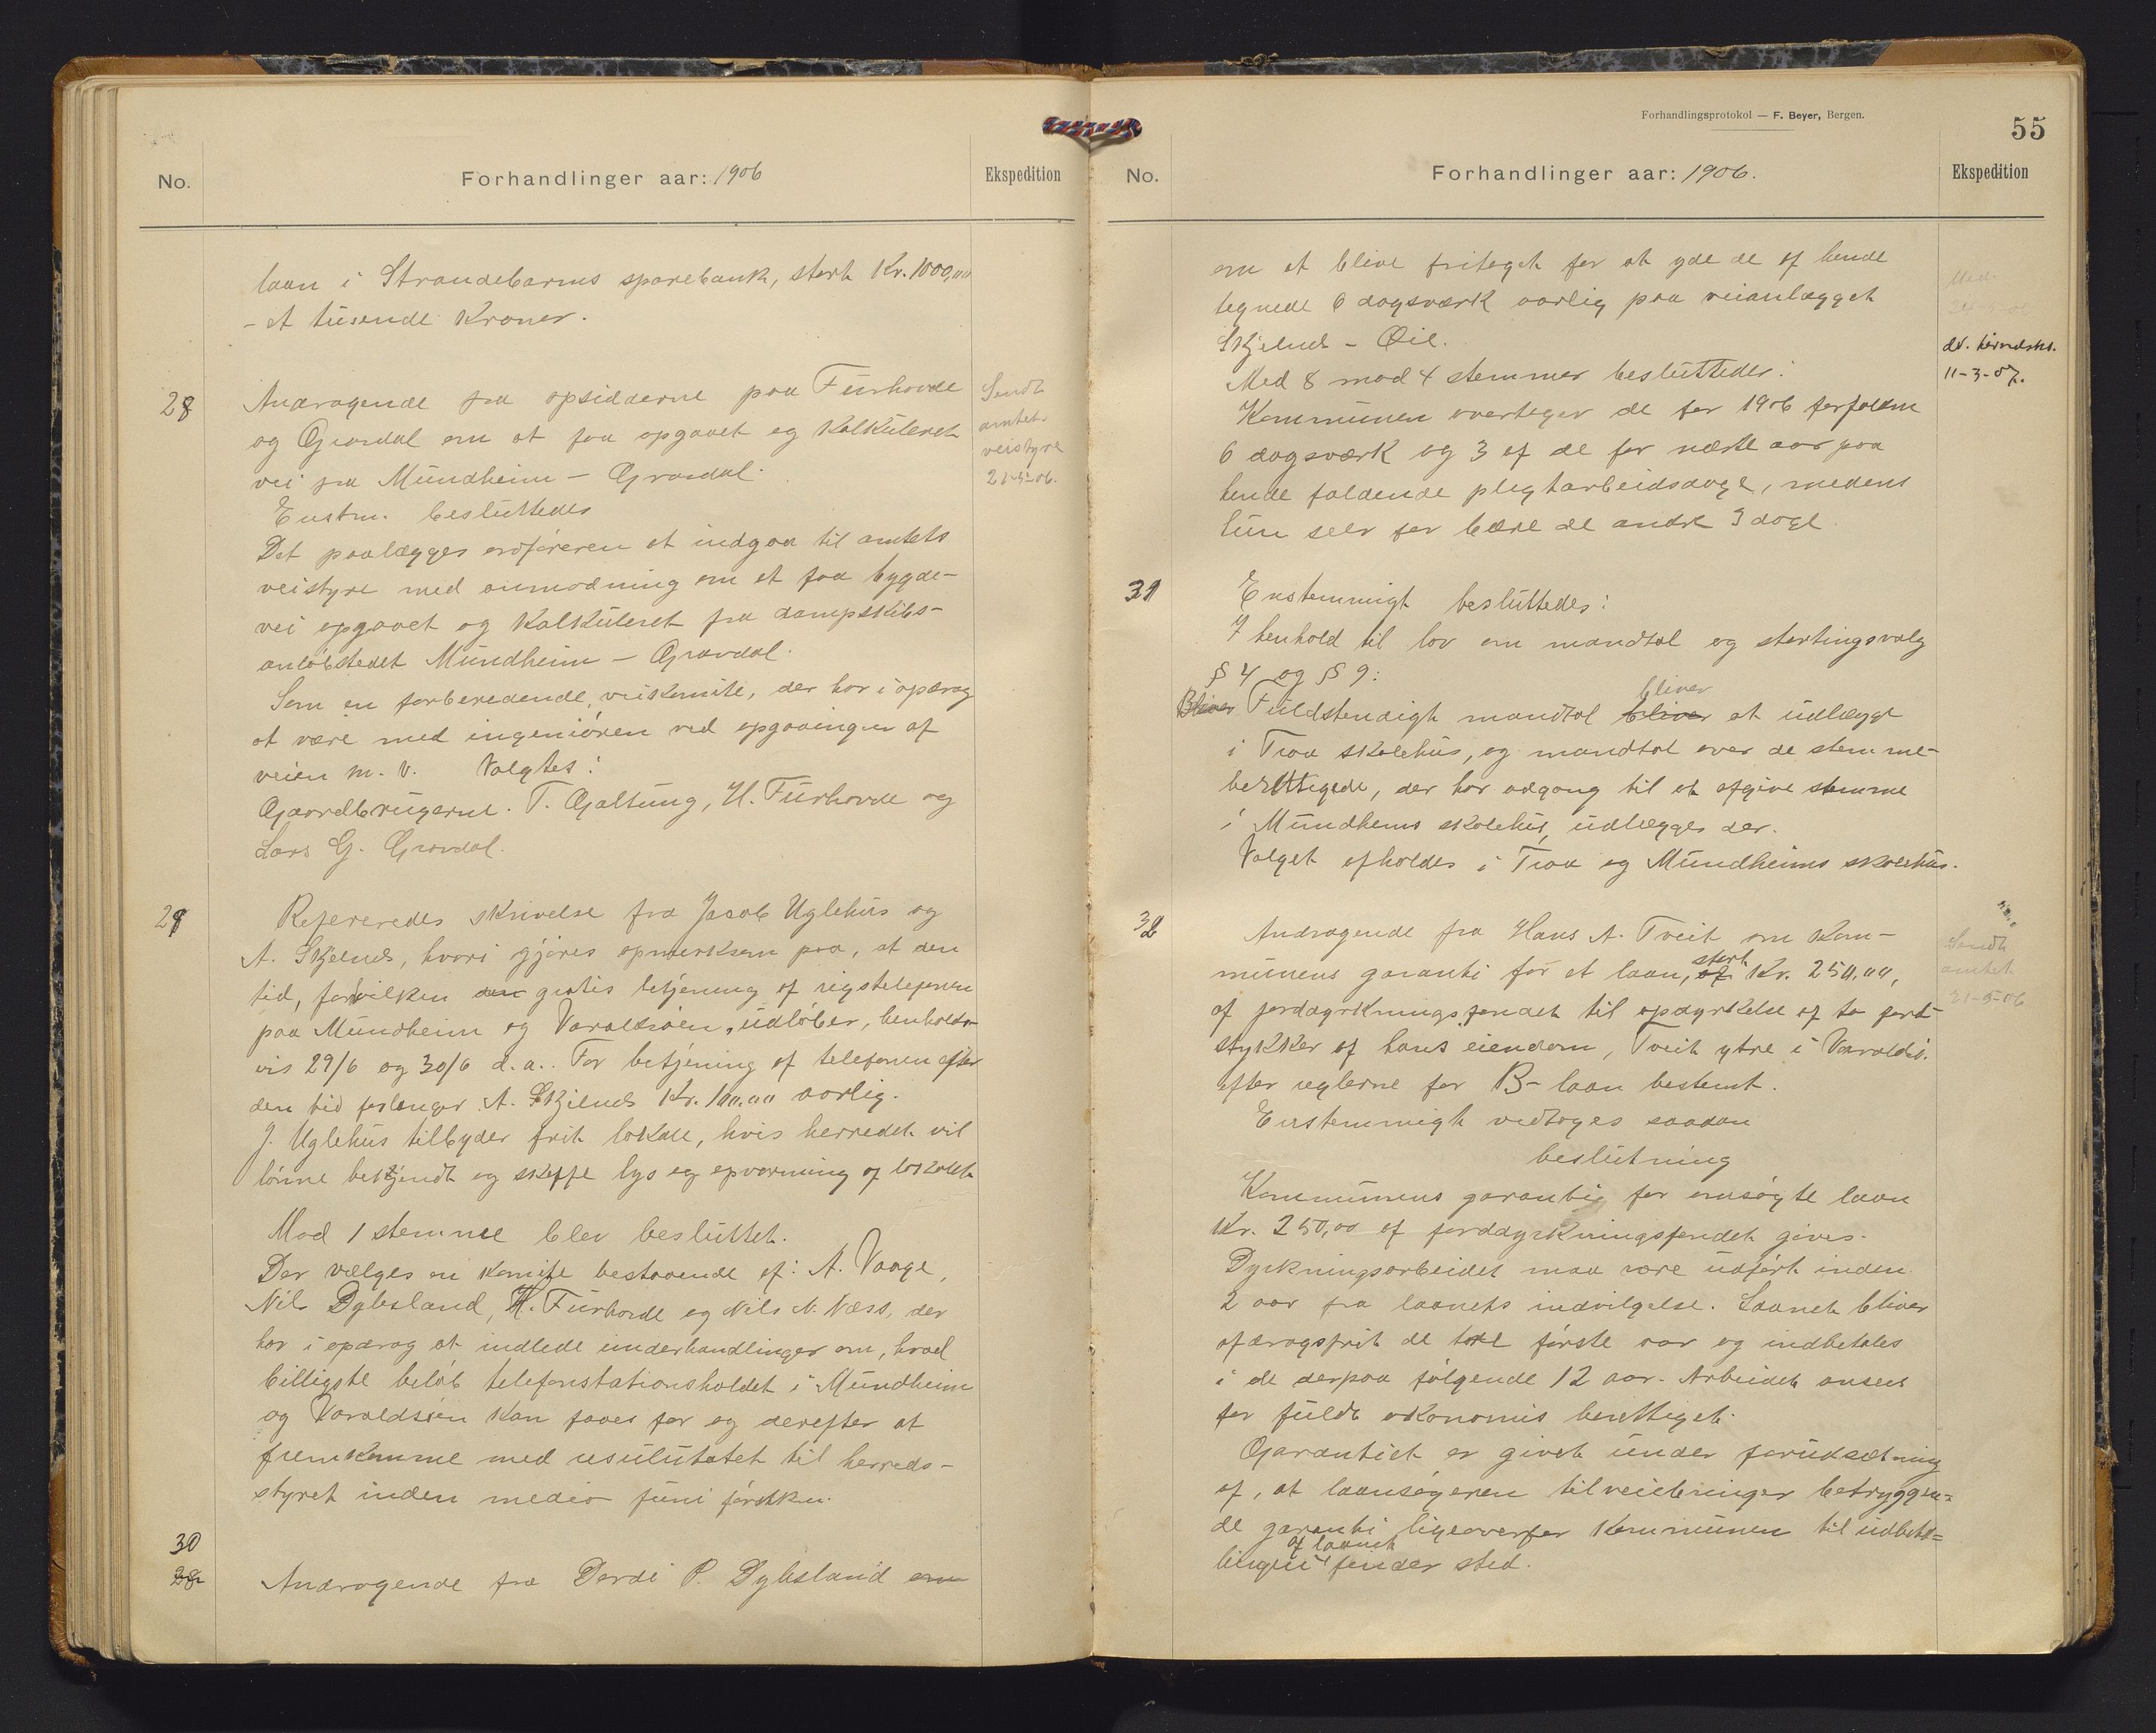 No.
Forhandlinger aar: 1906
Ekspedition
laan i Strandebarms sparebank, stort Kr. 1000,00
- et tusende Kroner.
28
Andragende fra opsidderne paa Furhovde
og Gravdal om at faa opgaaet og Kalkuleret
vei fra Mundheim - Gravdal.
Enstm. besluttedes
Det paalægges ordføreren at indgaa til amtets
veistyre med anmodning om at faa bygde-
vei opgaaet og Kalkuleret fra dampskibs-
anløbstedet Mundheim - Gravdal.
Som en forberedende veikomite, der har i opdrag
at være med ingeniøren ved opgaaingen af
veien m. v. Valgtes:
Gaardbrugerne. T. Galtung, H. Furhovde og
Lars G. Gravdal.
Sendt
amtets
veistyre
21-5-06.
29
Refereredes skrivelse fra Jacob Uglehus og
A. Skjelnes, hvori gjøres opmerksom paa, at den
tid, forhvilken den gratis betjening af rigstelefonen
paa Mundheim og Varaldsøen, udløber, henholds-
vis 29/6 og 30/6 d. a.. For betjening af telefonen efter
den tid forlanger A. Skjelnes Kr. 100.00 aarlig.
J. Uglehus tilbyder frit lokale, hvis herredet vil
lønne betjendt og skaffe lys og opvarming af lokalet
Mod 1 stemme blev besluttet.
Der vælges en Komite bestaaende af: A. Vaage,
Nils Dybsland, H. Furhovde og Nils N. Næss, der
har i opdrag at indlede underhandlinger om, hvad
billigste beløb telefonstationsholdet i Mundheim
og Varaldsøen Kan faaes for og derefter at
fremkomme med resulutatet til herreds-
styret inden medio juni førstkm.
30
28
Andragende fra Dordi P. Dybsland om
Forhandlingsprotokol — F. Beyer, Bergen.
55
No.
Forhandlinger aar: 1906.
Ekspedition
om at blive fritaget for at yde de af hende
tegnede 6 dagsværk aarlig paa veianlægget
Skjelnes - Øie.
Med 8 mod 4 stemmer besluttedes:
Kommunen overtager de for 1906 forfaldne
6 dagsværk og 3 af de for næste aar paa
hende faldende pligtarbeidsdage, medens
hun selv faar bære de andre 3 dage
11-3-07.
31
Enstemmigt besluttedes:
I henhold til lov om mandtal og stortingsvalg
§ 4 og § 9:
bliver
Bliver Fuldstendigt mandtal bliver at udlægge
i Traa skolehus, og mandtal over de stemme-
berettigede, der har adgang til at afgive stemme
i Mundheims skolehus, udlægges der.
Valget afholdes i Traa og Mundheims skolehus.
32
Andragende fra Hans A. Tveit om Kom-
stort
munens garanti for et laan, af Kr. 250.00,
af jorddyrkningsfondet til opdyrkelse af to jord-
stykker af hans eiendom, Tveit ytre i Varaldsø.
efter reglerne for B-laan bestemt.
Enstemmigt vedtoges saadan
beslutning
Kommunens garanti for omsøgte laan
Kr. 250,00 af jorddyrkningsfondet gives.
Dyrkningsarbeidet maa være udført inden
2 aar fra laanets indvilgelse. Laanet bliver
afdragsfrit de to første aar og indbetales
i de derpaa følgende 12 aar. Arbeidet ansees
for fuldt økonomis berettiget.
Garantiet er givet under forudsætning
af, at laansøgeren tilveiebringer betryggen-
de garanti ligeoverfor Kommunen til udbeta-
af laanet
lingen finder sted.
Sendt
amtet
21-5-06